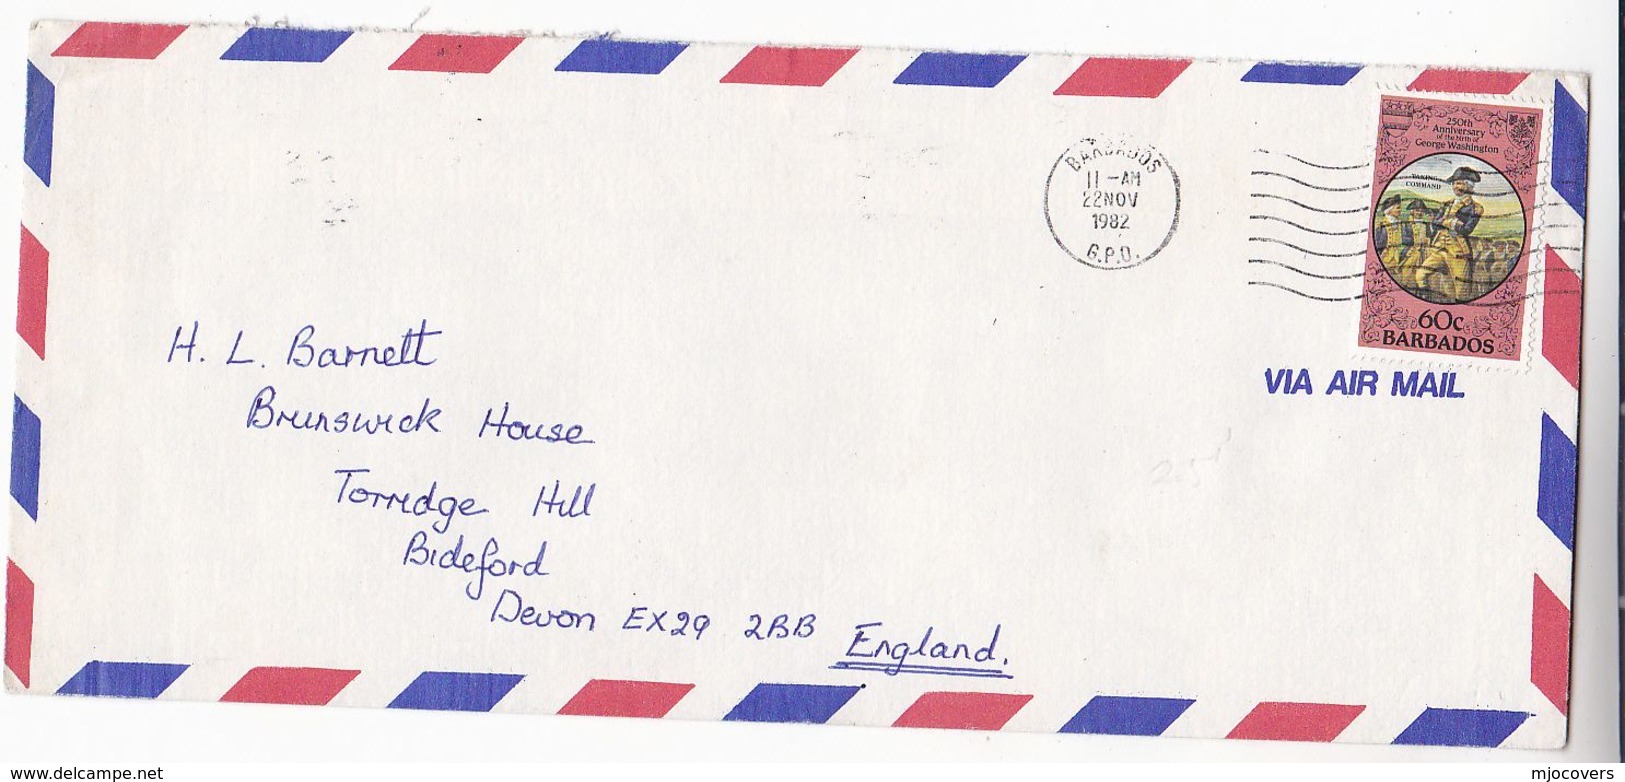 BARBADOS
11-AM
22NOV
1982
G.P.O.
250th
Anniversary
of the birth of
George Washington
TAKING
COMMAND
60c
BARBADOS
VIA AIR MAIL
H. L. Barnett
Brunswick House
Torridge Hill
Bideford
Devon EX29 2BB England.
25
www.delcampe.net
mjocovers